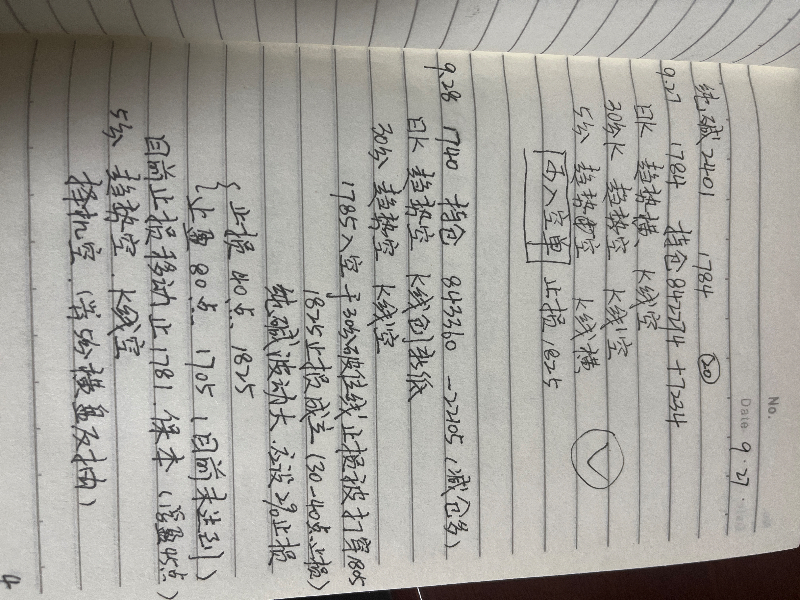 No.
Date 9.27
纯碱2401 1784 空
9.27 1784 持仓842274 +7234
日K 趋势横、K线空
30分K 趋势空 K线空
5分 趋势空 K线横
买入空单 止损1825
9.28 1740 持仓 843360 -22105(减仓多)
日K 趋势空 K线创新低
30分 趋势空 K线空
1785入空 于30分破位线止损被打算1805
1825止损成立(30-40点止损)
纯碱波动大.应设2%止损
止损40点 1825
止盈80点 1705(目前未达到)
目前止损移动止1781.保本(浮盈45点)
5分 趋势空.K线空
择机空(等5分横盘反抽)
4